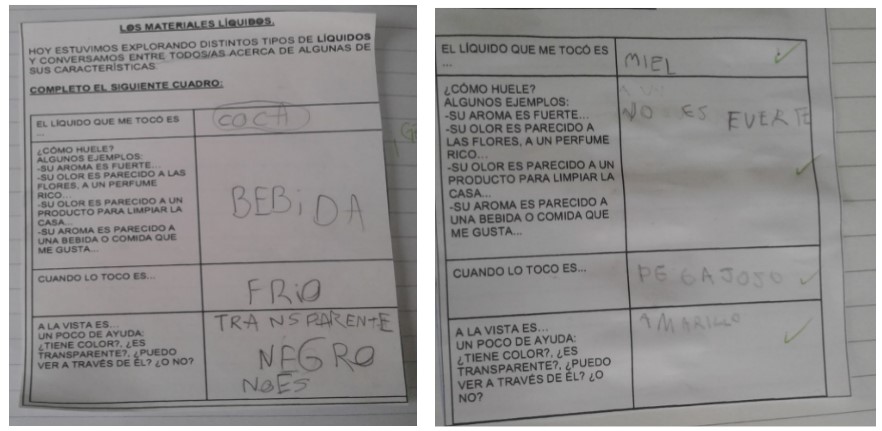 LOS MATERIALES LÍQUIDOS.
HOY ESTUVIMOS EXPLORANDO DISTINTOS TIPOS DE LÍQUIDOS
Y CONVERSAMOS ENTRE TODOS/AS ACERCA DE ALGUNAS DE
SUS CARACTERÍSTICAS.
COMPLETO EL SIGUIENTE CUADRO:
EL LÍQUIDO QUE ME TOCÓ ES
...
COCA
¿CÓMO HUELE?
ALGUNOS EJEMPLOS:
-SU AROMA ES FUERTE...
-SU OLOR ES PARECIDO A LAS
FLORES, A UN PERFUME
RICO...
-SU OLOR ES PARECIDO A UN
PRODUCTO PARA LIMPIAR LA
CASA...
-SU AROMA ES PARECIDO A
UNA BEBIDA O COMIDA QUE
ME GUSTA...
BEBiDA
CUANDO LO TOCO ES...
FRiO
A LA VISTA ES...
UN POCO DE AYUDA:
¿TIENE COLOR?, ¿ES
TRANSPARENTE?, ¿PUEDO
VER A TRAVÉS DE ÉL? ¿O NO?
TRANSPARENTE
NEGRO
NOES
EL LÍQUIDO QUE ME TOCÓ ES
...
MIEL
¿CÓMO HUELE?
ALGUNOS EJEMPLOS:
-SU AROMA ES FUERTE...
-SU OLOR ES PARECIDO A
LAS FLORES, A UN PERFUME
RICO...
-SU OLOR ES PARECIDO A UN
PRODUCTO PARA LIMPIAR LA
CASA...
-SU AROMA ES PARECIDO A
UNA BEBIDA O COMIDA QUE
ME GUSTA...
NO ES FUERTE
CUANDO LO TOCO ES...
PEGAJOJO
A LA VISTA ES...
UN POCO DE AYUDA:
¿TIENE COLOR?, ¿ES
TRANSPARENTE?, ¿PUEDO
VER A TRAVÉS DE ÉL? ¿O
NO?
AMARILLO